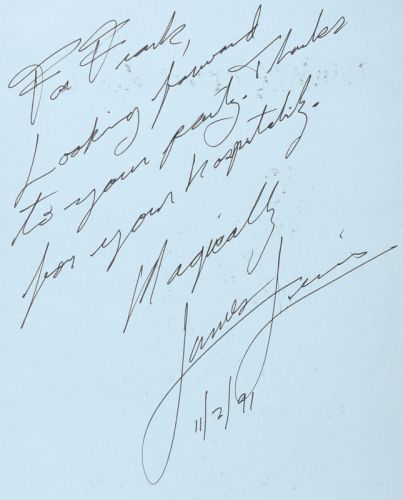 For Frank,
Looking forward
to your party. Thanks
for your hospitality.
Magically
James Lewis
11/2/91